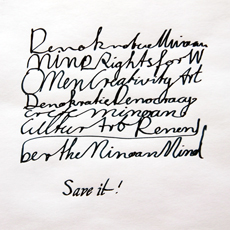 Minoan
Mind Rights for W
omen Creativity Art
Demokratie Democracy
Minoan
Cultur Remem
ber the Minoan Mind
Save it!